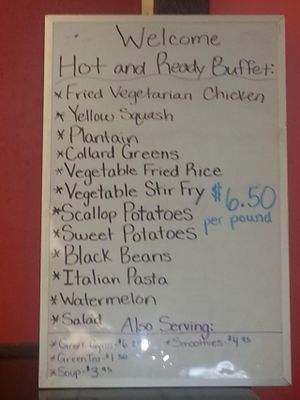 Welcome
Hot and Ready Buffet:
*Fried Vegetarian Chicken
*Yellow Squash
*Plantain
*Collard Greens
*Vegetable Fried Rice
*Vegetable Stir Fry $6.50
*Scallop Potatoes per pound
*Sweet Potatoes
*Black Beans
*Italian Pasta
*Watermelon
*Salad Also Serving:
*Smoothies-$4.95
*Green Tea-$1.50
*Soup-$3.95